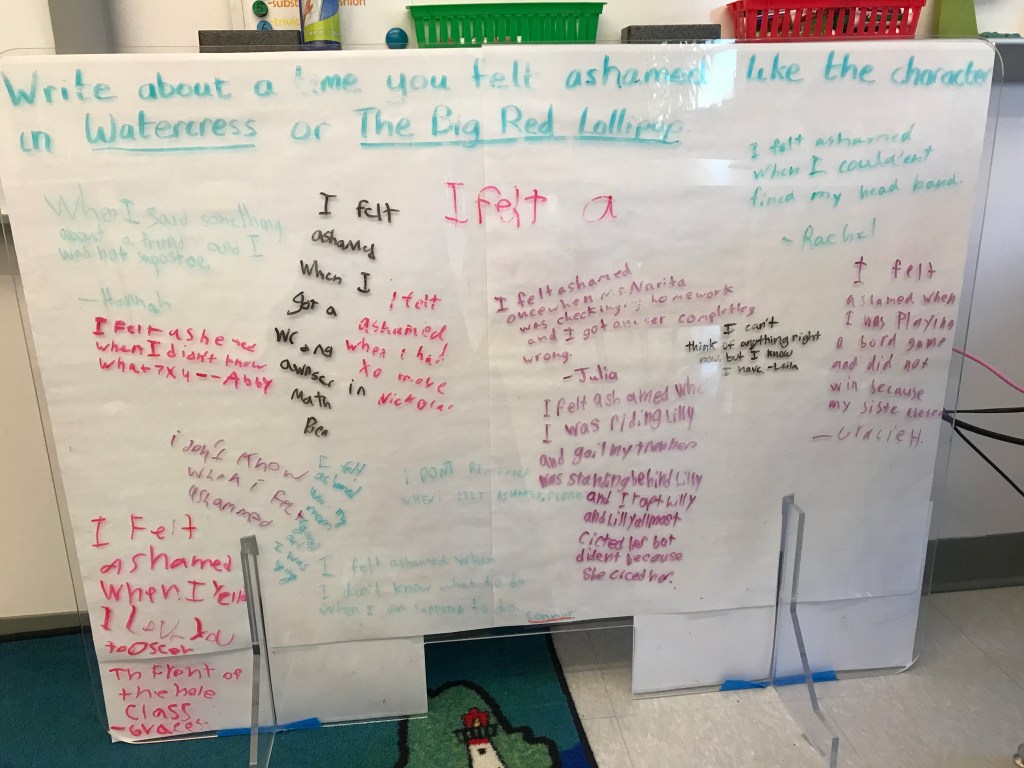 Write about a time you felt ashamed like the character
in Watercress or The Big Red Lollipop
When I said something
about a friend and I
was not supostoe
- Hannah
I felt
ashamed
When I
got a
wrong
awnser in
Math
Ben
I felt a
I felt ashamed
when I could'ent
fined my head band.
~ Rachel
I felt
ashamed
when i had
no more
I felt ashamed
once when m.s. Narita
was checking my homework
and I got an completley
wrong.
- Julia
I can't
think of anything right
now but I know
I have. - Leila
I felt
aslamed when
I was Playing
a bord game
and did not
win because
my siste
- Gracie H.
when I didn't know
what 7x4 -- Abby
I felt ashamed
I was riding Lilly
and gail my
was standing behind Lilly
and I Lilly
and Lilly allmost
cicted her but
dident because
She ciced her.
i don't know
when i felt
ashammed
I felt
my
I was
i DONT
WHEN I FELT
I felt ashamed when
I don't know what to do
when I am to do.
Connor
I Felt
ashamed
When I
I Love You
to Oscar
In Front of
the hole
Class
- Graces.